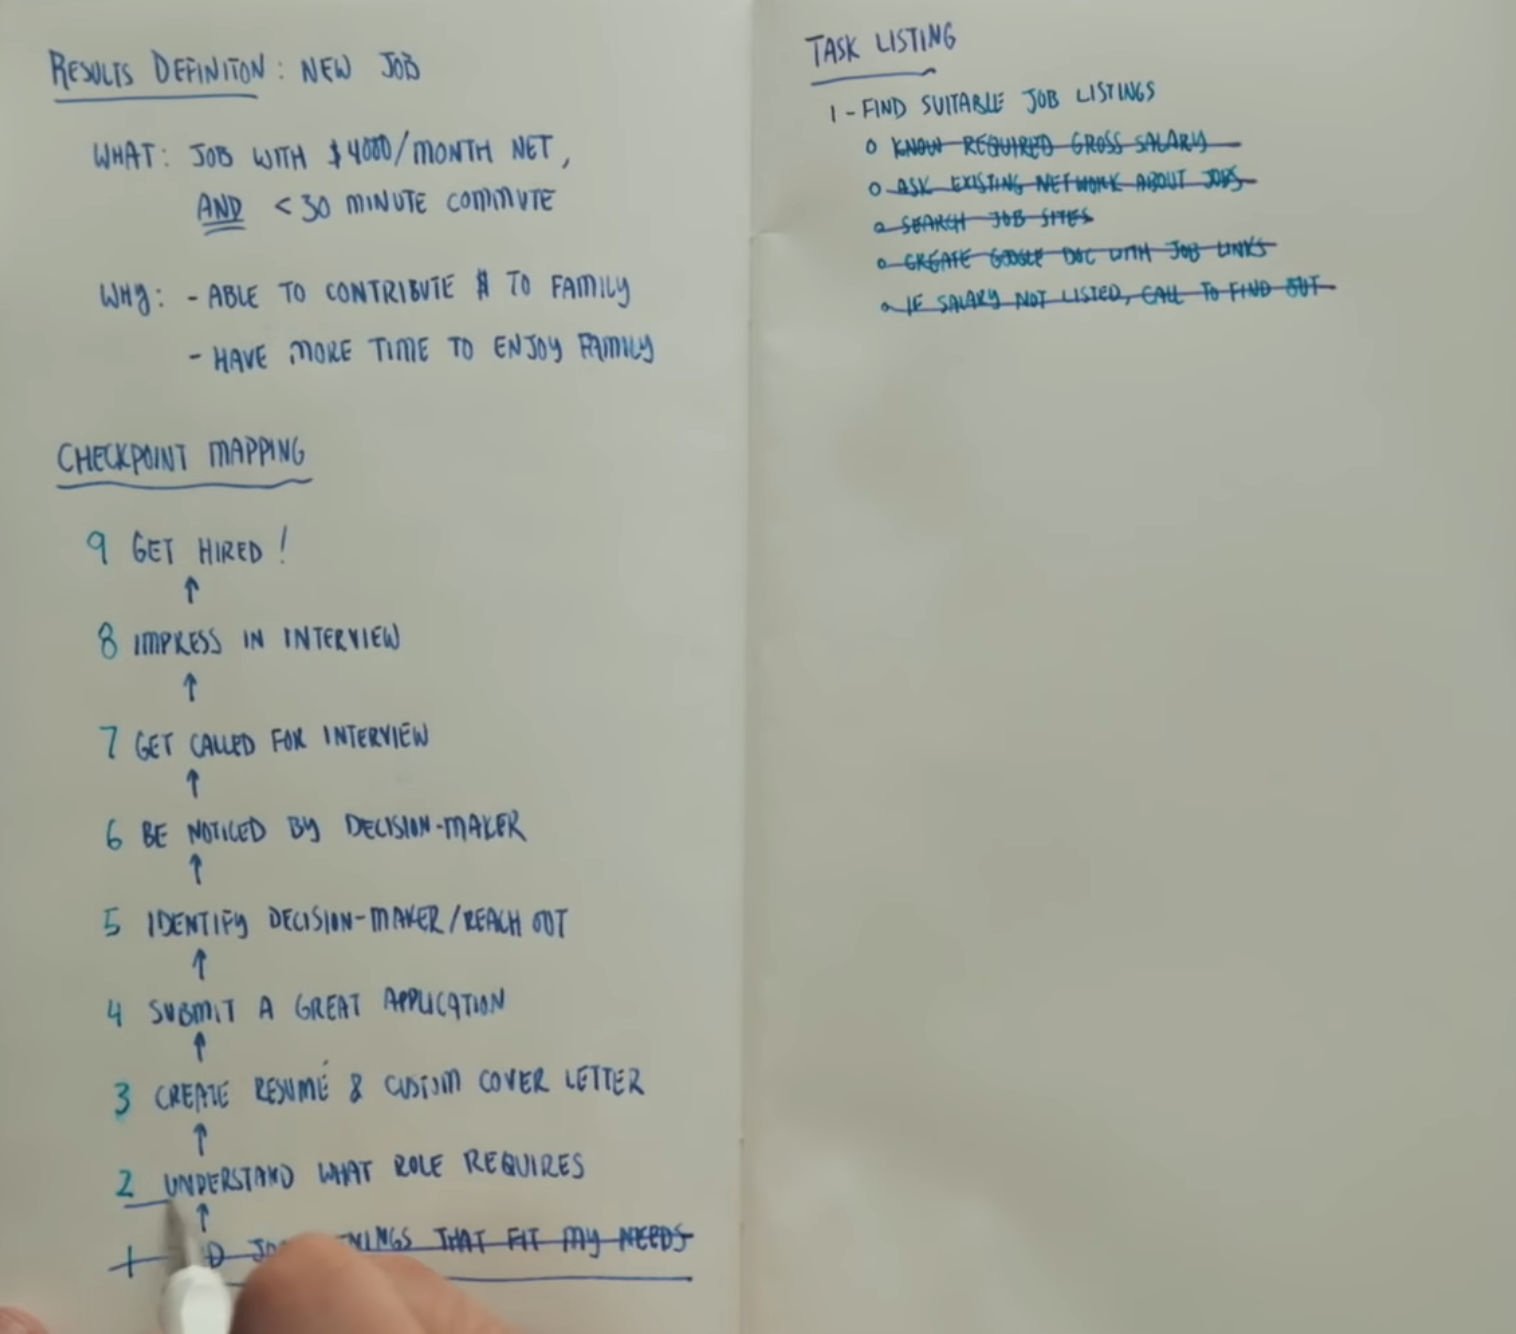 RESULTS DEFINITON: NEW JOB
WHAT: JOB WITH $4000/MONTH NET,
AND < 30 MINUTE COMMUTE
WHY: - ABLE TO CONTRIBUTE $ TO FAMILY
- HAVE MORE TIME TO ENJOY FAMILY
CHECKPOINT MAPPING
9 GET HIRED!
↑
8 IMPRESS IN INTERVIEW
↑
7 GET CALLED FOR INTERVIEW
↑
6 BE NOTICED BY DECISION-MAKER
↑
5 IDENTIFY DECISION-MAKER/REACH OUT
↑
4 SUBMIT A GREAT APPLICATION
↑
3 CREATE RESUMÉ & CUSTOM COVER LETTER
↑
2 UNDERSTAND WHAT ROLE REQUIRES
↑
1 THAT FIT MY NEEDS
TASK LISTING
1 - FIND SUITABLE JOB LISTINGS
o KNOW REQUIRED GROSS SALARY
o ASK EXISTING NETWORK ABOUT JOBS
o SEARCH JOB SITES
o CREATE GOOGLE DOC WITH JOB LINKS
o IF SALARY NOT LISTED, CALL TO FIND OUT